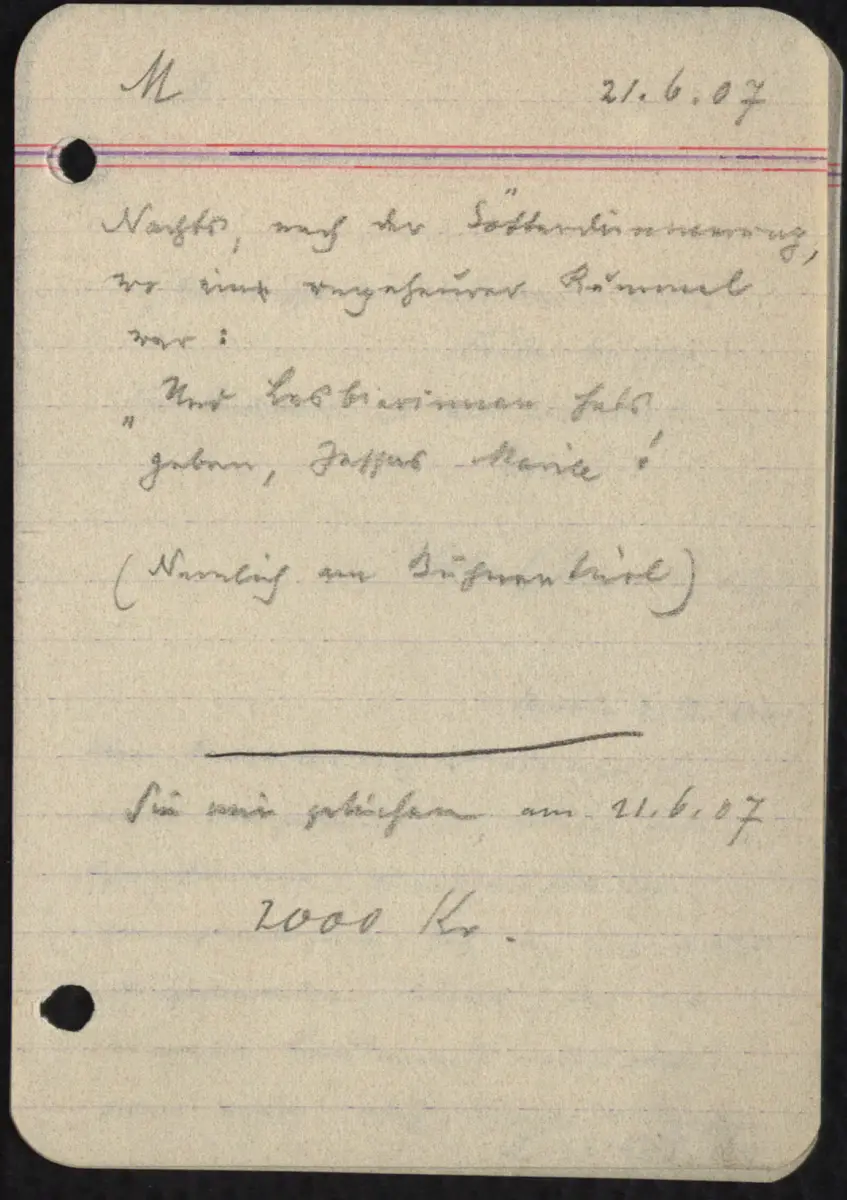 M 21.6.07
Nachts, nach der Götterdämmerung,
wo ein ungeheurer Rummel
war:
„Und Lesbierinnen hats
geben, Jessas Marie!
(Nemlich am Bühnentürl)
Sie mir geliehen am 21.6.07
2000 Kr.